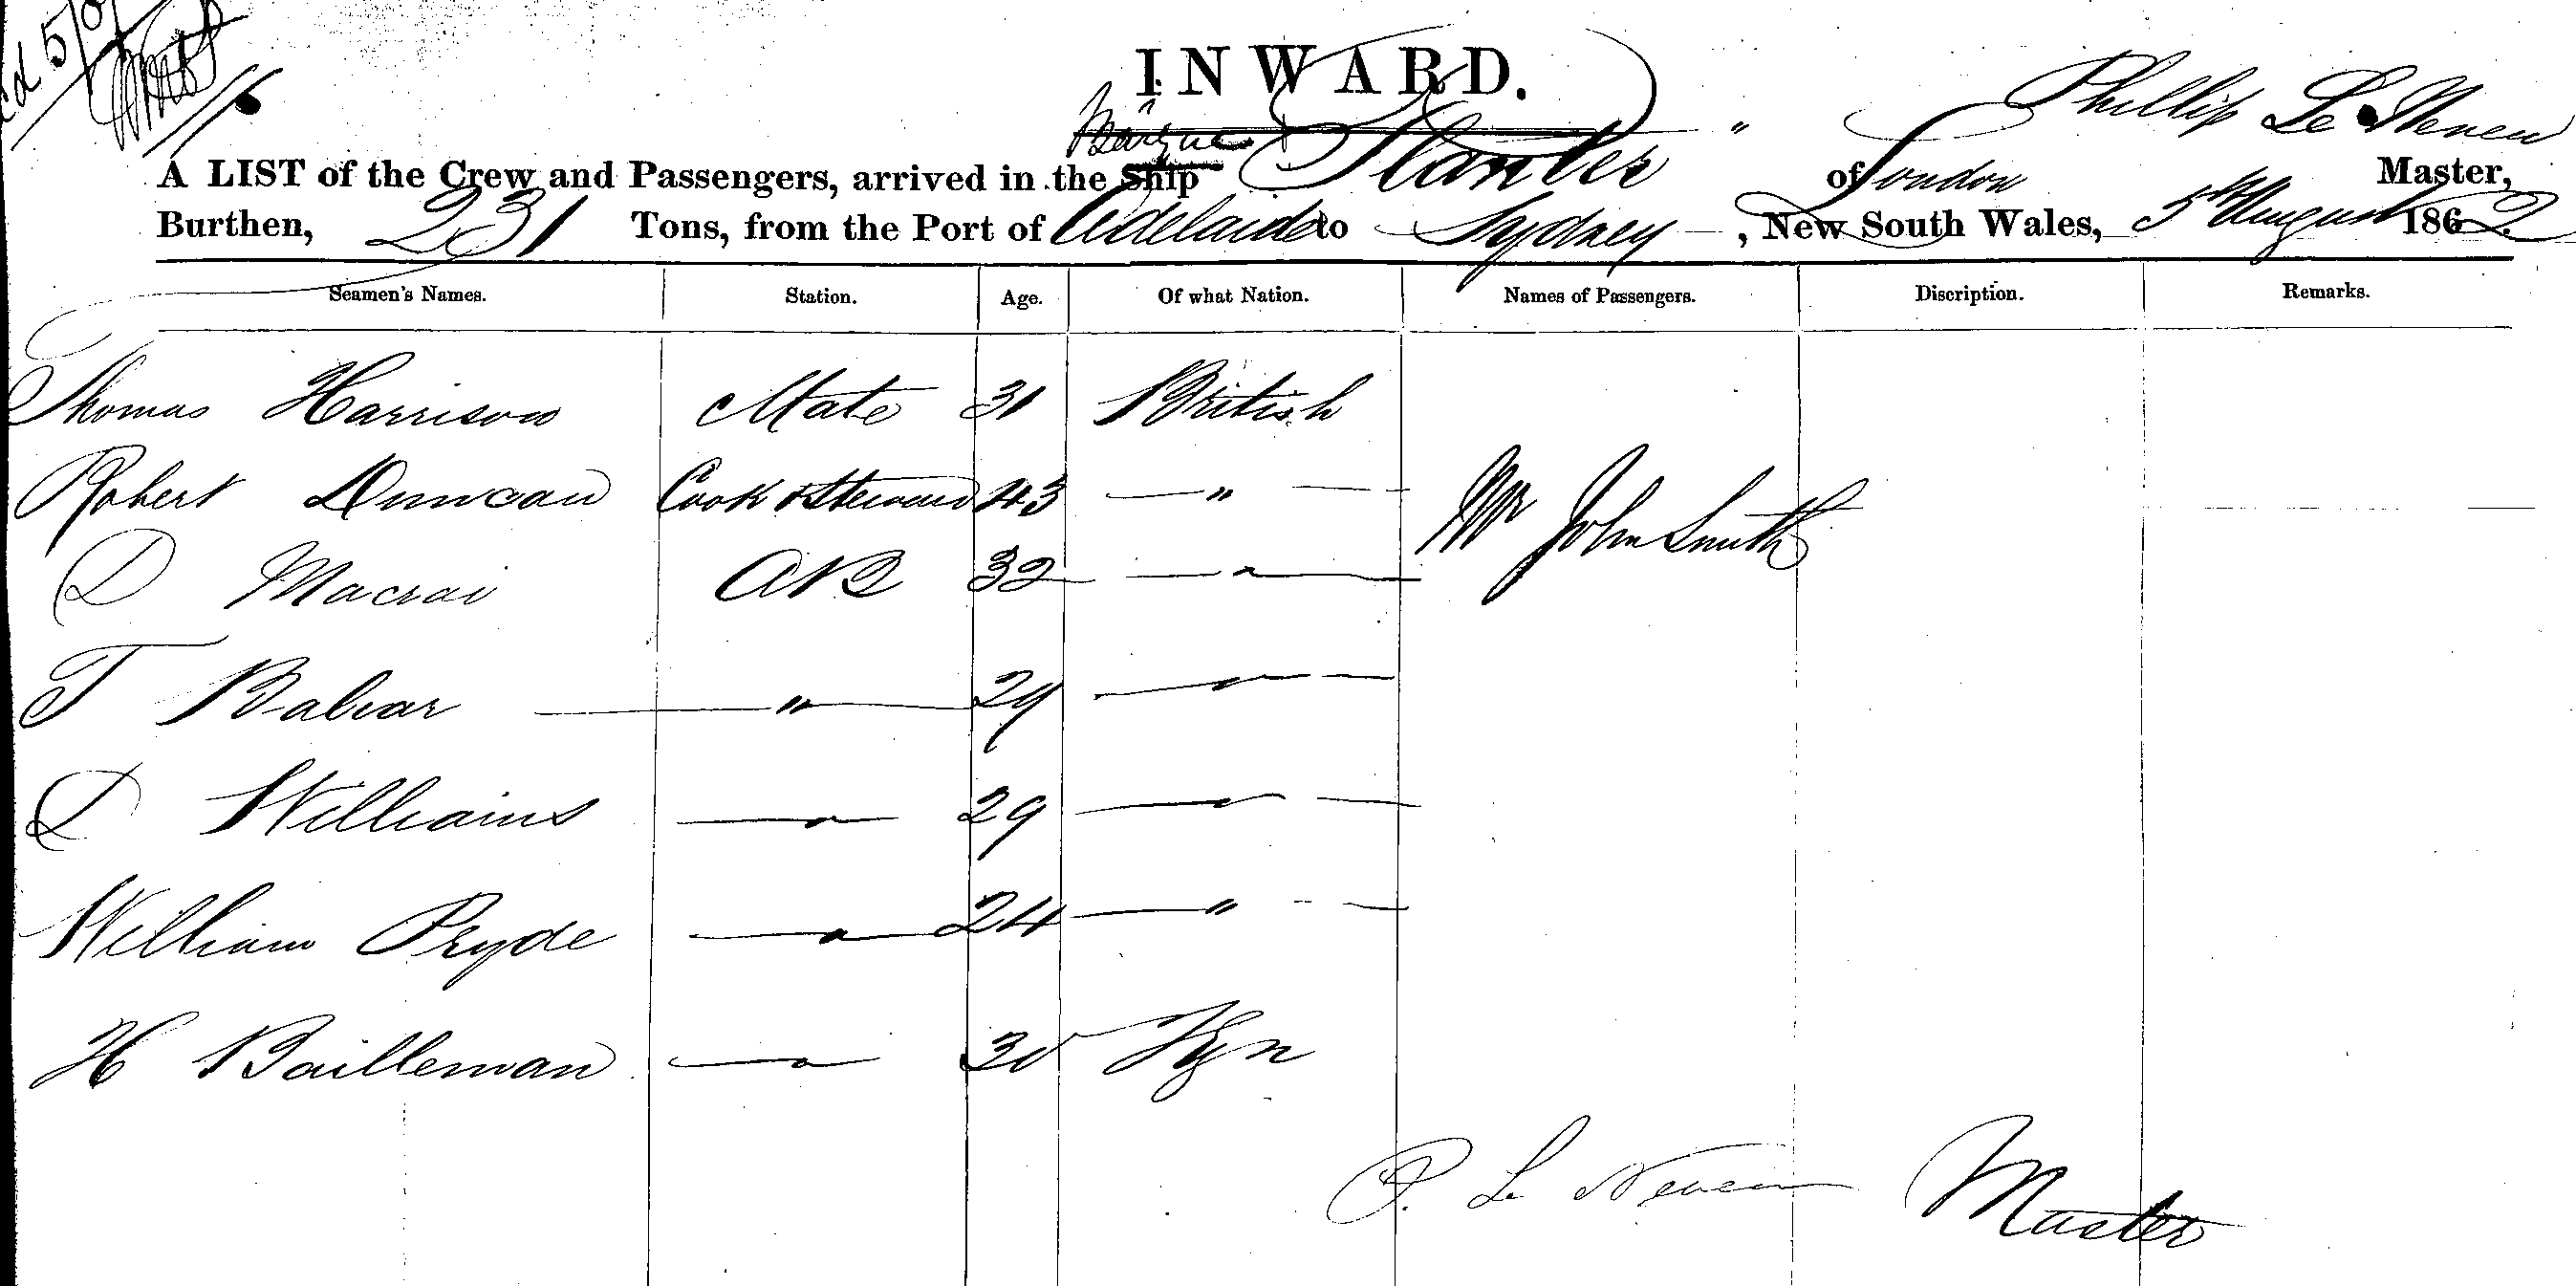 INWARD.
A LIST of the Crew and Passengers, arrived in the Ship Barque Planter of London Phillip Le Neveu Master,
Burthen, 231 Tons, from the Port of Adelaide to Sydney, New South Wales, 5th August 1862
Seamen's Names. Station. Age. Of what Nation. Names of Passengers. Discription. Remarks.
Thomas Harrison Mate 31 British
Robert Duncan Cook & Steward 43 " Mr John Smith
D Macrai AB 32 "
T Balvar " 29 "
D Williams " 29 "
William Pryde " 24 "
H Bailleman " 30 Fgn
P. Le Neveu Master